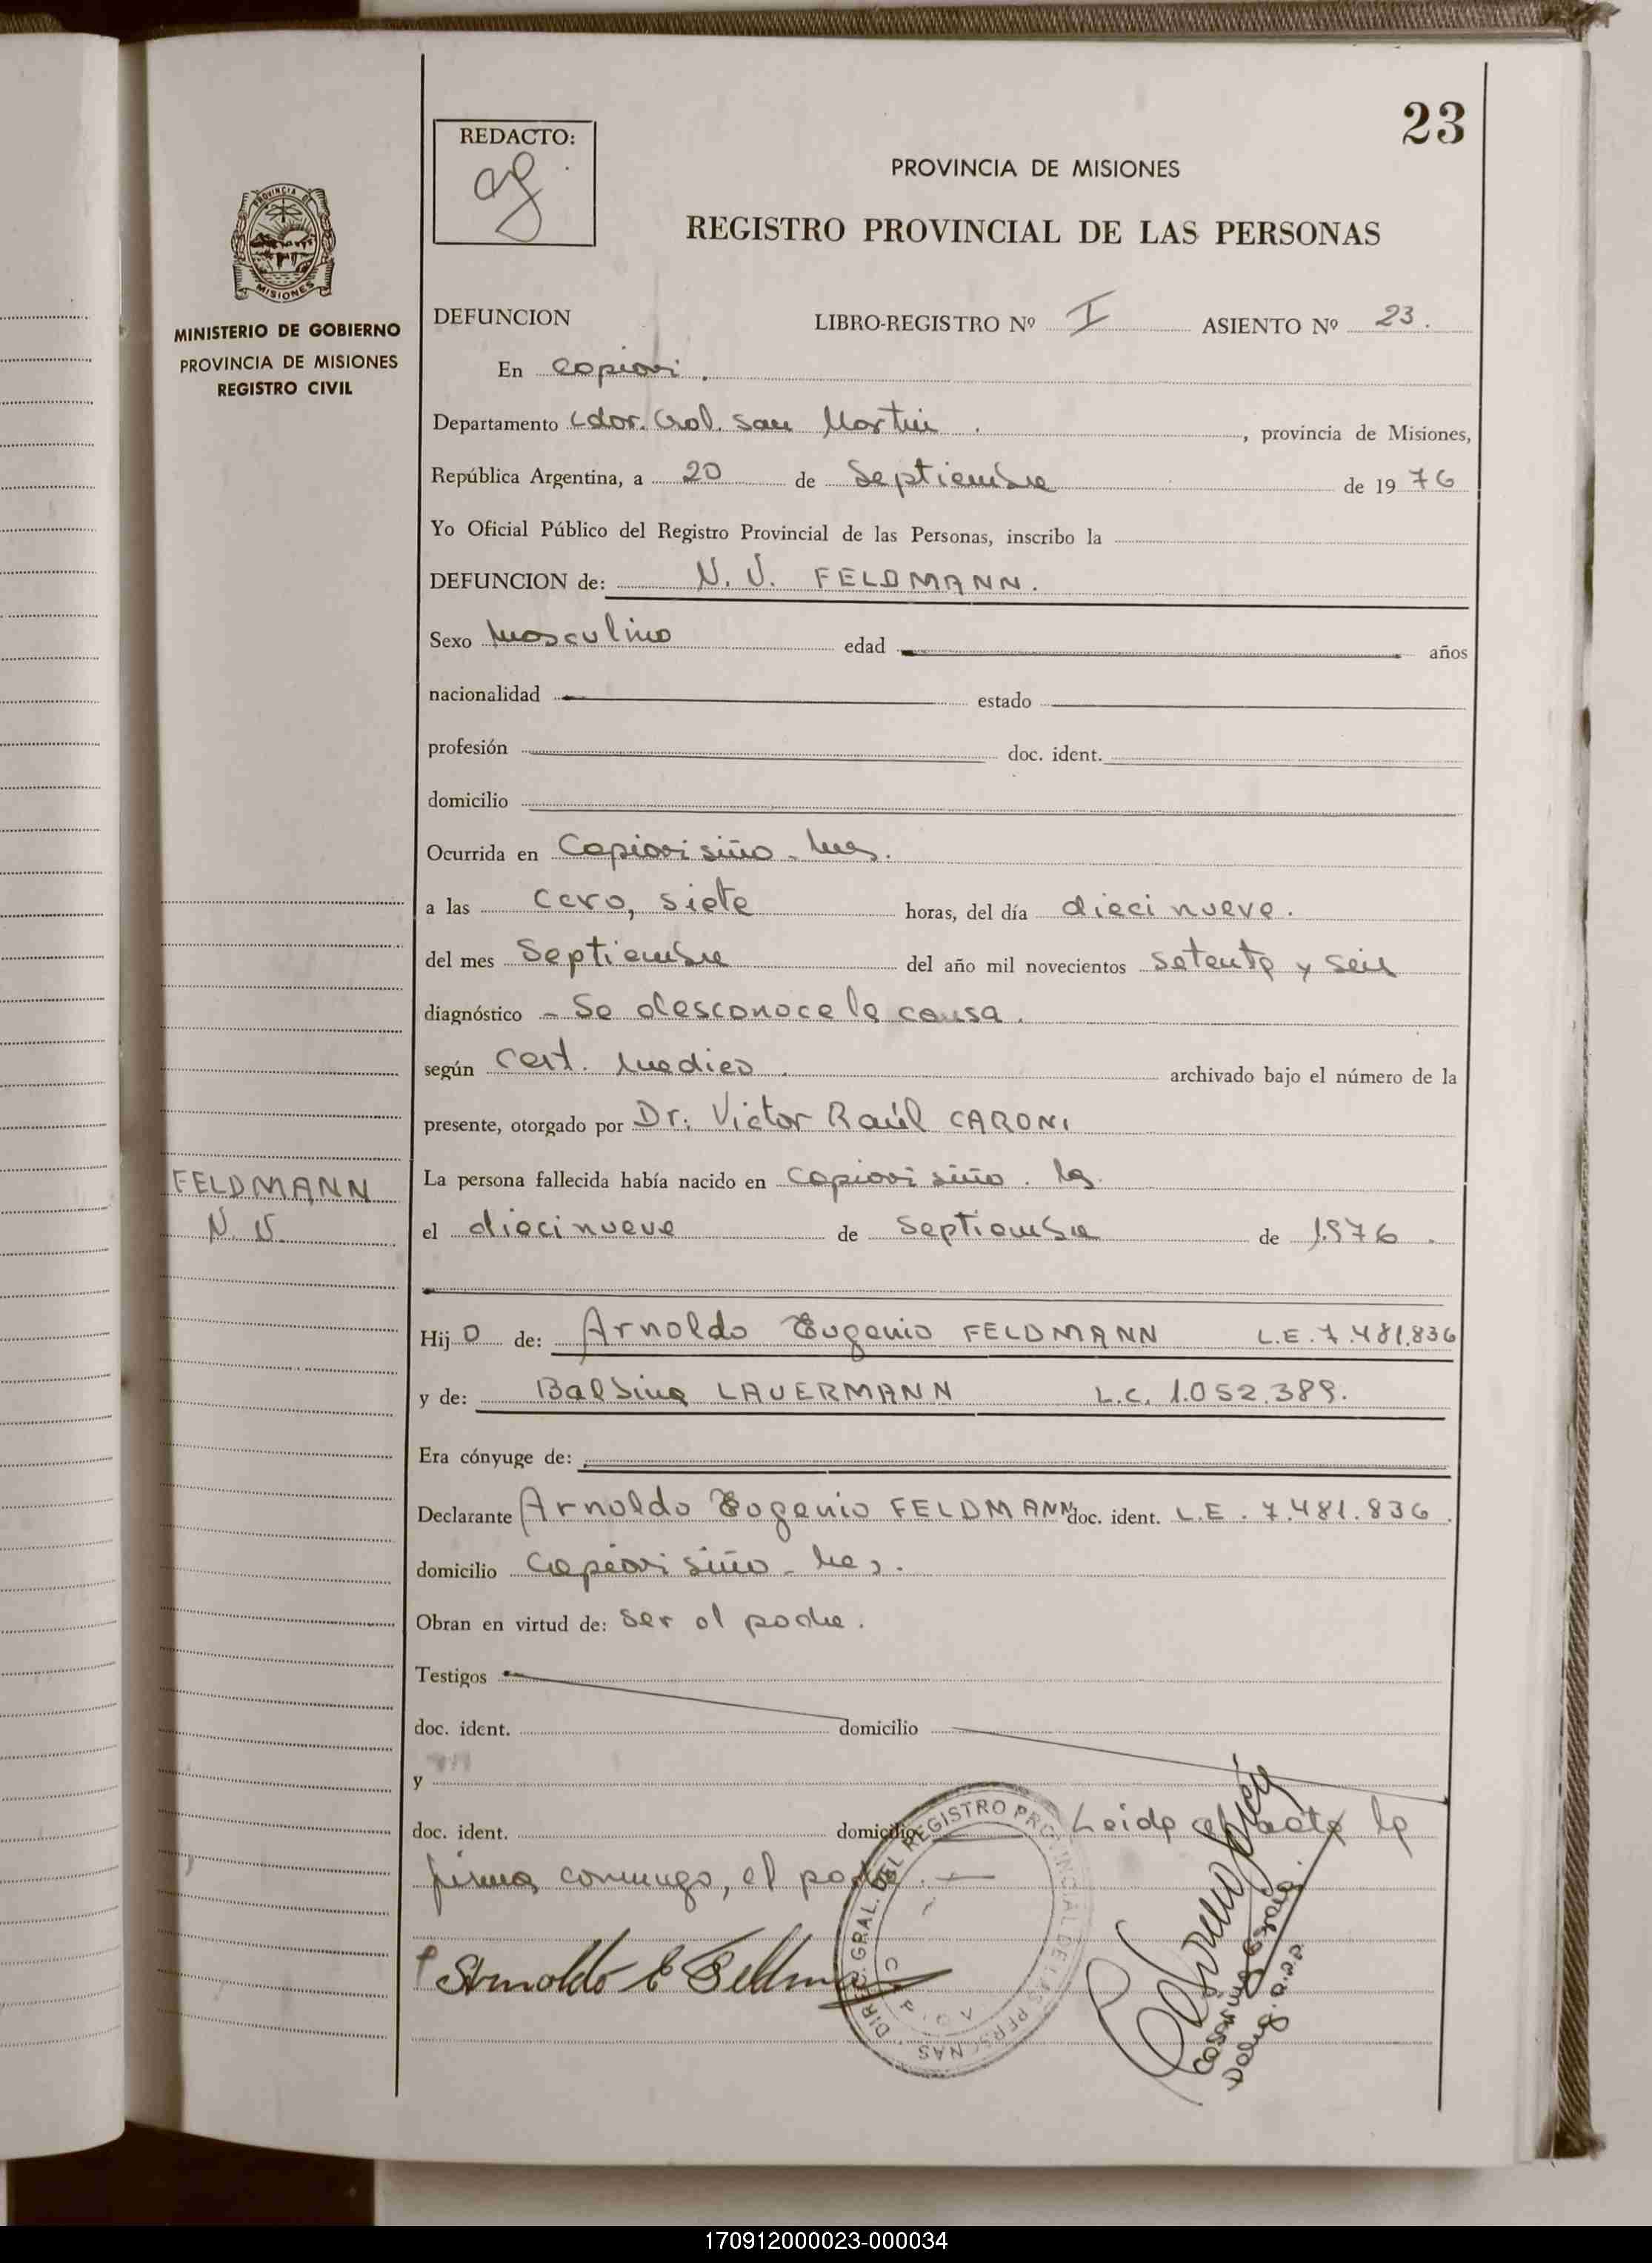 23
REDACTO:
PROVINCIA DE MISIONES
REGISTRO PROVINCIAL DE LAS PERSONAS
PROVINCIA DE
MISIONES
MINISTERIO DE GOBIERNO
PROVINCIA DE MISIONES
REGISTRO CIVIL
DEFUNCION LIBRO-REGISTRO Nº I ASIENTO Nº 23.
En Capiovi.
Departamento Ldor. Gral. San Martin. , provincia de Misiones,
República Argentina, a 20 de Septiembre de 1976
Yo Oficial Público del Registro Provincial de las Personas, inscribo la
DEFUNCION de: N. N. FELDMANN.
Sexo Masculino edad años
nacionalidad estado
profesión doc. ident.
domicilio
Ocurrida en Capiovisiño - Mes.
a las cero, siete horas, del día diecinueve.
del mes Septiembre del año mil novecientos setenta y seis
diagnóstico - Se desconoce la causa.
según Cert. Medico. archivado bajo el número de la
presente, otorgado por Dr: Victor Raúl CARONI
La persona fallecida había nacido en Capiovisiño.
FELDMANN
N. N.
el diecinueve de Septiembre de 1.976.
Hijo de: Arnoldo Eugenio FELDMANN L.E. 7.481.836
y de: Balbina LAUERMANN L.C. 1.052.389.
Era cónyuge de:
Declarante Arnoldo Eugenio FELDMANN doc. ident. L.E. 7.481.836.
domicilio Capiovisiño - Mes.
Obran en virtud de: Ser el padre.
Testigos
doc. ident. domicilio
y
doc. ident. domicilio Leida el acta la
firma conmigo, el padre.
Arnoldo E Feldmann
DIREC. GRAL. DEL REGISTRO PROVINCIAL DE LAS PERSONAS
170912000023-000034